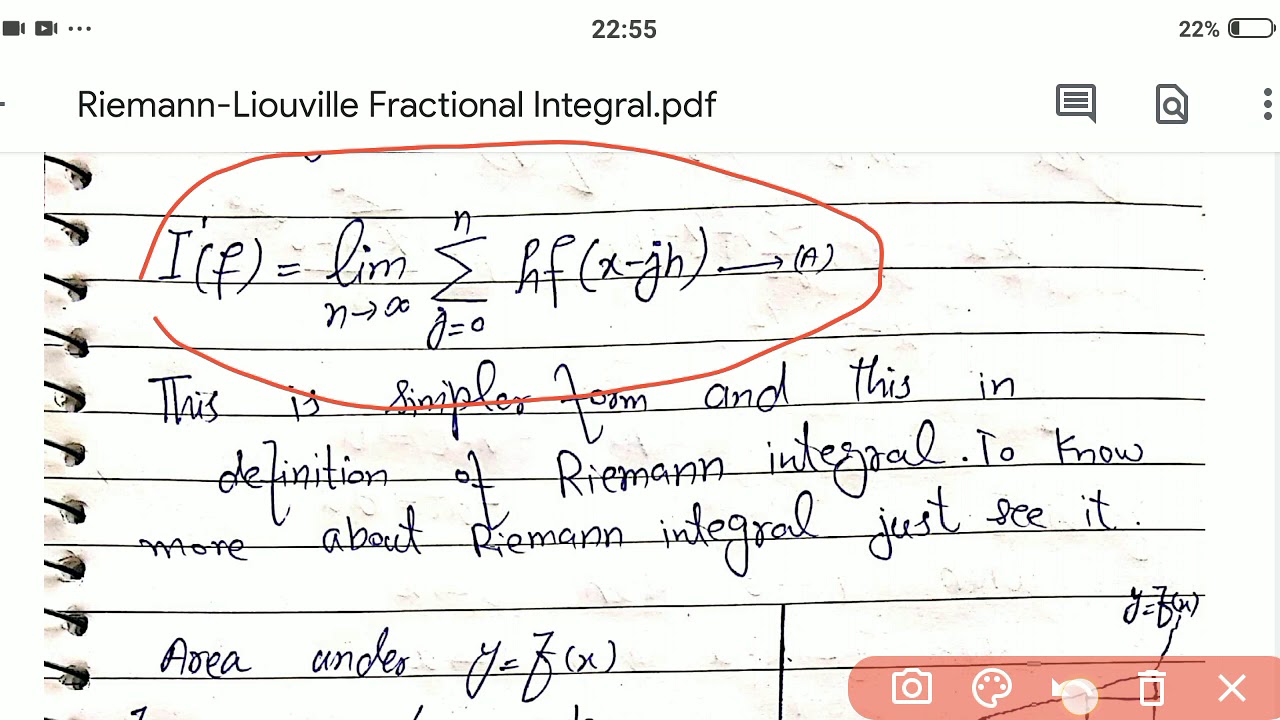 22:55
22%
Riemann-Liouville Fractional Integral.pdf
I'(f) = lim n→∞ n Σ j=0 hf(x-jh) → (A)
This is simpler form and this in
definition of Riemann integral. To know
more about Riemann integral just see it.
y=f(x)
Area under y=f(x)